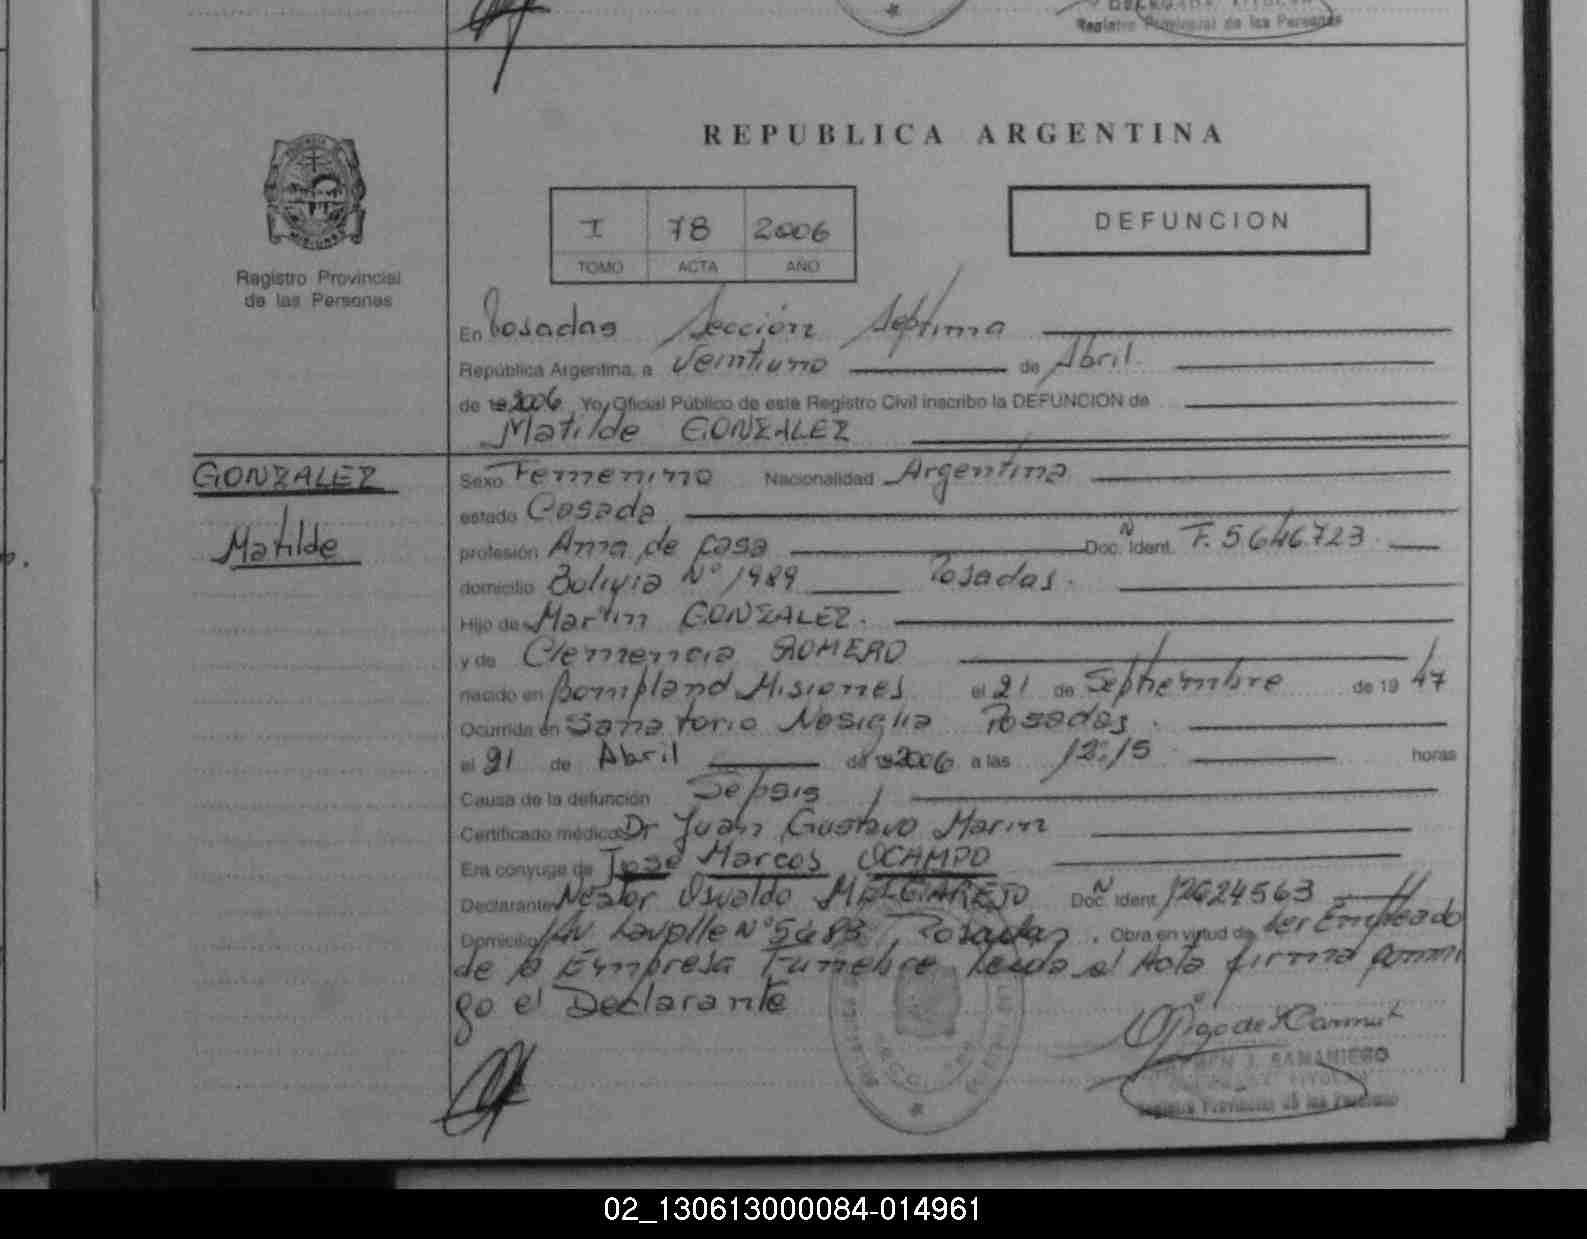 Registro Provincial de las Personas
REPUBLICA ARGENTINA
I 78 2006
TOMO ACTA AÑO
DEFUNCION
Registro Provincial
de las Personas
En Posadas Sección Séptima
República Argentina, a Veintiuno de Abril
de 19 2006 Yo, Oficial Público de este Registro Civil inscribo la DEFUNCION de
Matilde GONZALEZ
GONZALEZ
Matilde
Sexo Femenino Nacionalidad Argentina
estado Casada
profesión Ama de casa Doc. Nº Ident. F. 5646723
domicilio Bolivia Nº 1989 Posadas.
Hijo de Martin GONZALEZ.
y de Clemencia ROMERO
nacido en Bompland Misiones el 21 de Septiembre de 19 47
Ocurrida en Sanatorio Nosiglia Posadas.
el 21 de Abril de 19 2006 a las 12:15 horas
Causa de la defunción Sepsis
Certificado médico Dr Juan Gustavo Marin
Era cónyuge de José Marcos OCAMPO
Declarante Nestor Osvaldo MELGAREJO Doc. Nº Ident. 12624563
Domicilio Av. Lavalle Nº 5683 Posadas. Obra en virtud de ser Empleado
de la Empresa Funebre Leida el Acta firma conmi
go el Declarante
J. SAMANIEGO
Registro Provincial de las Personas
02_130613000084-014961